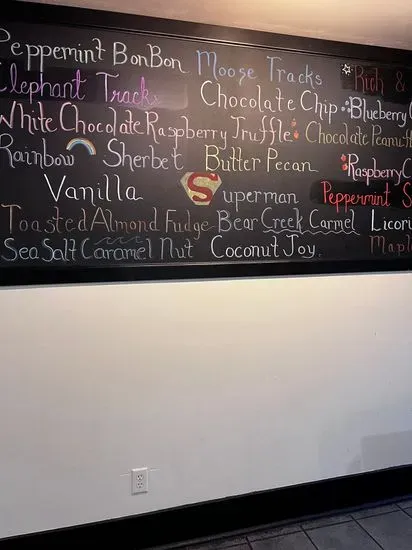 Peppemint BonBon Moose Tracks Rich &
Elephant Tracks Chocolate Chip Blueberry
White Chocolate Raspberry Truffle Chocolate Peanut
Rainbow Sherbet Butter Pecan Raspberry
Vanilla Superman Peppermint S
Toasted Almond Fudge Bear Creek Carmel Licori
Sea Salt Caramel Nut Coconut Joy Maple